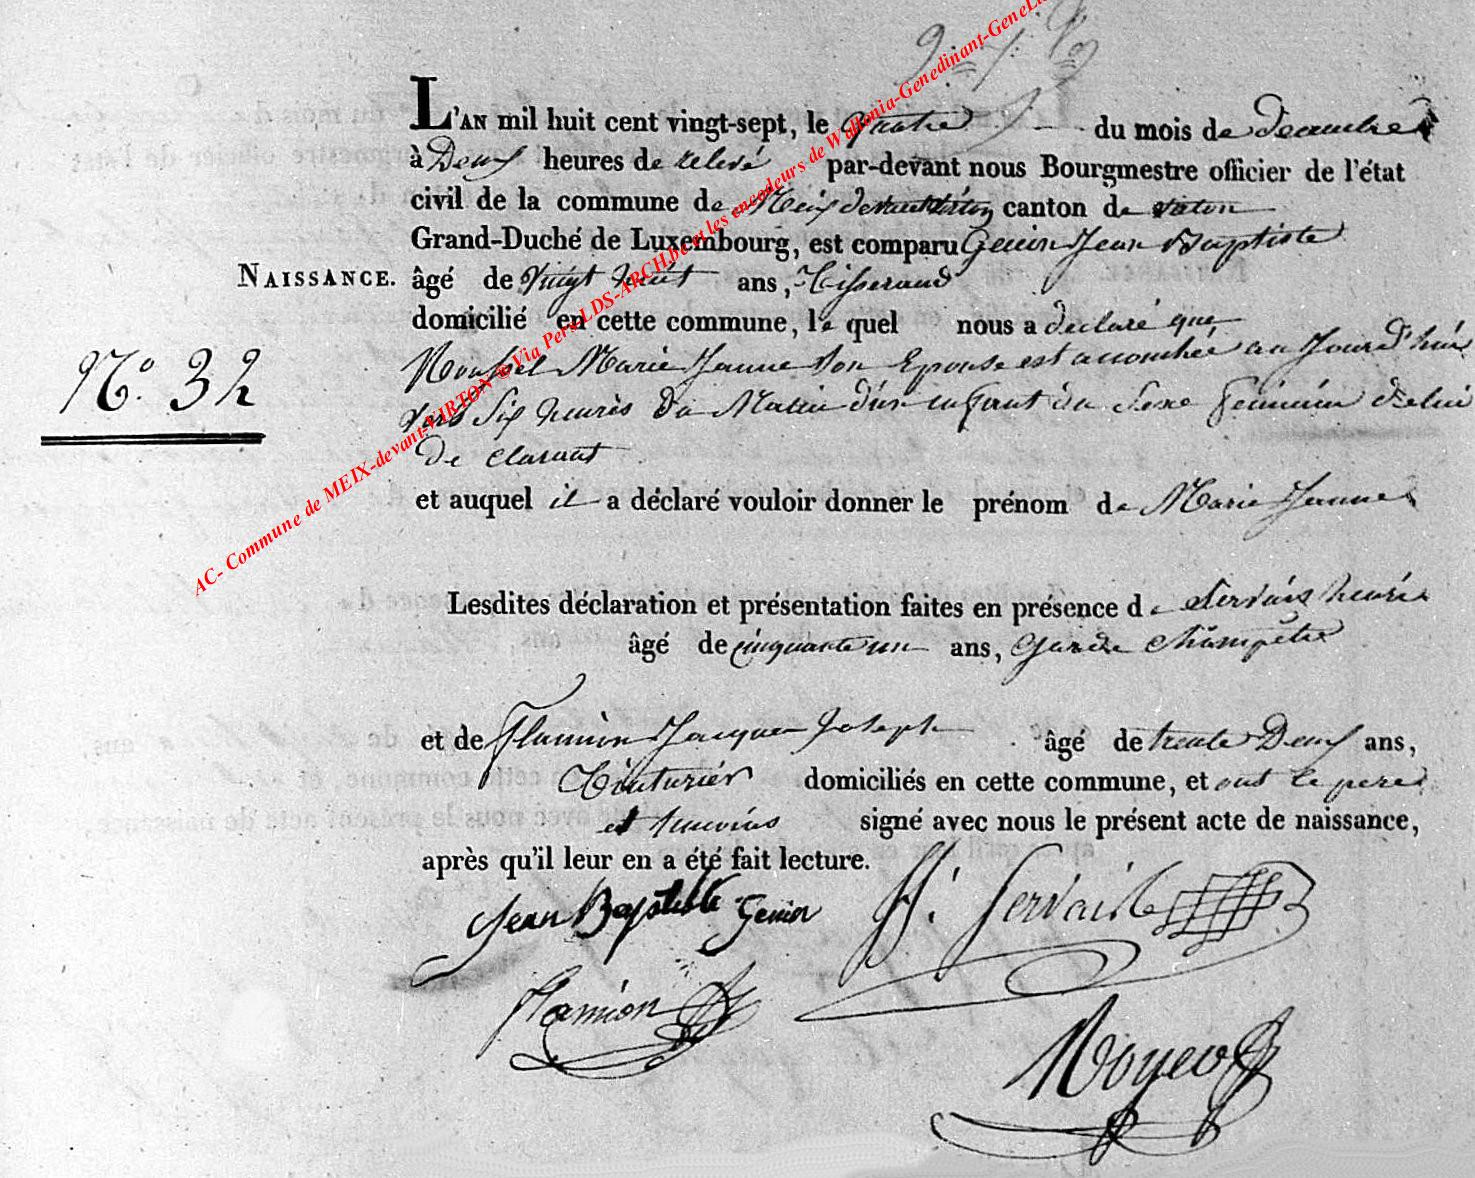 L'AN mil huit cent vingt-sept, le quatre du mois de Decembre
à Deux heures de relevé par-devant nous Bourgmestre officier de l'état
civil de la commune de Meix devant virton canton de virton
Grand-Duché de Luxembourg, est comparu Genin Jean Baptiste
NAISSANCE. âgé de vingt huit ans, Tisserand
domicilié en cette commune, le quel nous a declaré que
N.° 32
Marie Jeanne Son Epouse est accouchée au Jourd'hui
vers Six heures Du Matin d'un enfant du Sexe feminin
de clarant
et auquel il a déclaré vouloir donner le prénom de Marie Jeanne
Lesdites déclaration et présentation faites en présence de Servais henri
âgé de cinquante un ans, Garde Champêtre
et de Flamion Jacques Joseph âgé de trente Deux ans,
Couturier domiciliés en cette commune, et ont le pere
et temoins signé avec nous le présent acte de naissance,
après qu'il leur en a été fait lecture.
Jean Baptiste Genin H. Servais
flamion
AC- Commune de MEIX-devant-VIRTON © Via Pers-LDS-ARCH.be et les encodeurs de Wallonia-Genedinant-GeneLux